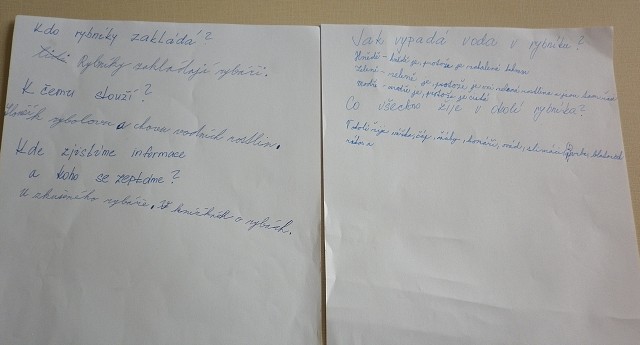 Kdo rybníky zakládá?
Rybníky zakládají rybáři.
K čemu slouží?
rybolovu a chovu vodních rostlin.
Kde zjistíme informace
a koho se zeptáme?
U zkušeného rybáře. V knížkách o rybách.
Jak vypadá voda v rybníku?
Hnědá - hnědá je, protože je
Zelená - zelená je, protože je
modrá - modrá je, protože je čistá
Co všechno žije v okolí rybníka?
V okolí žije čáp, žáby, komáři,